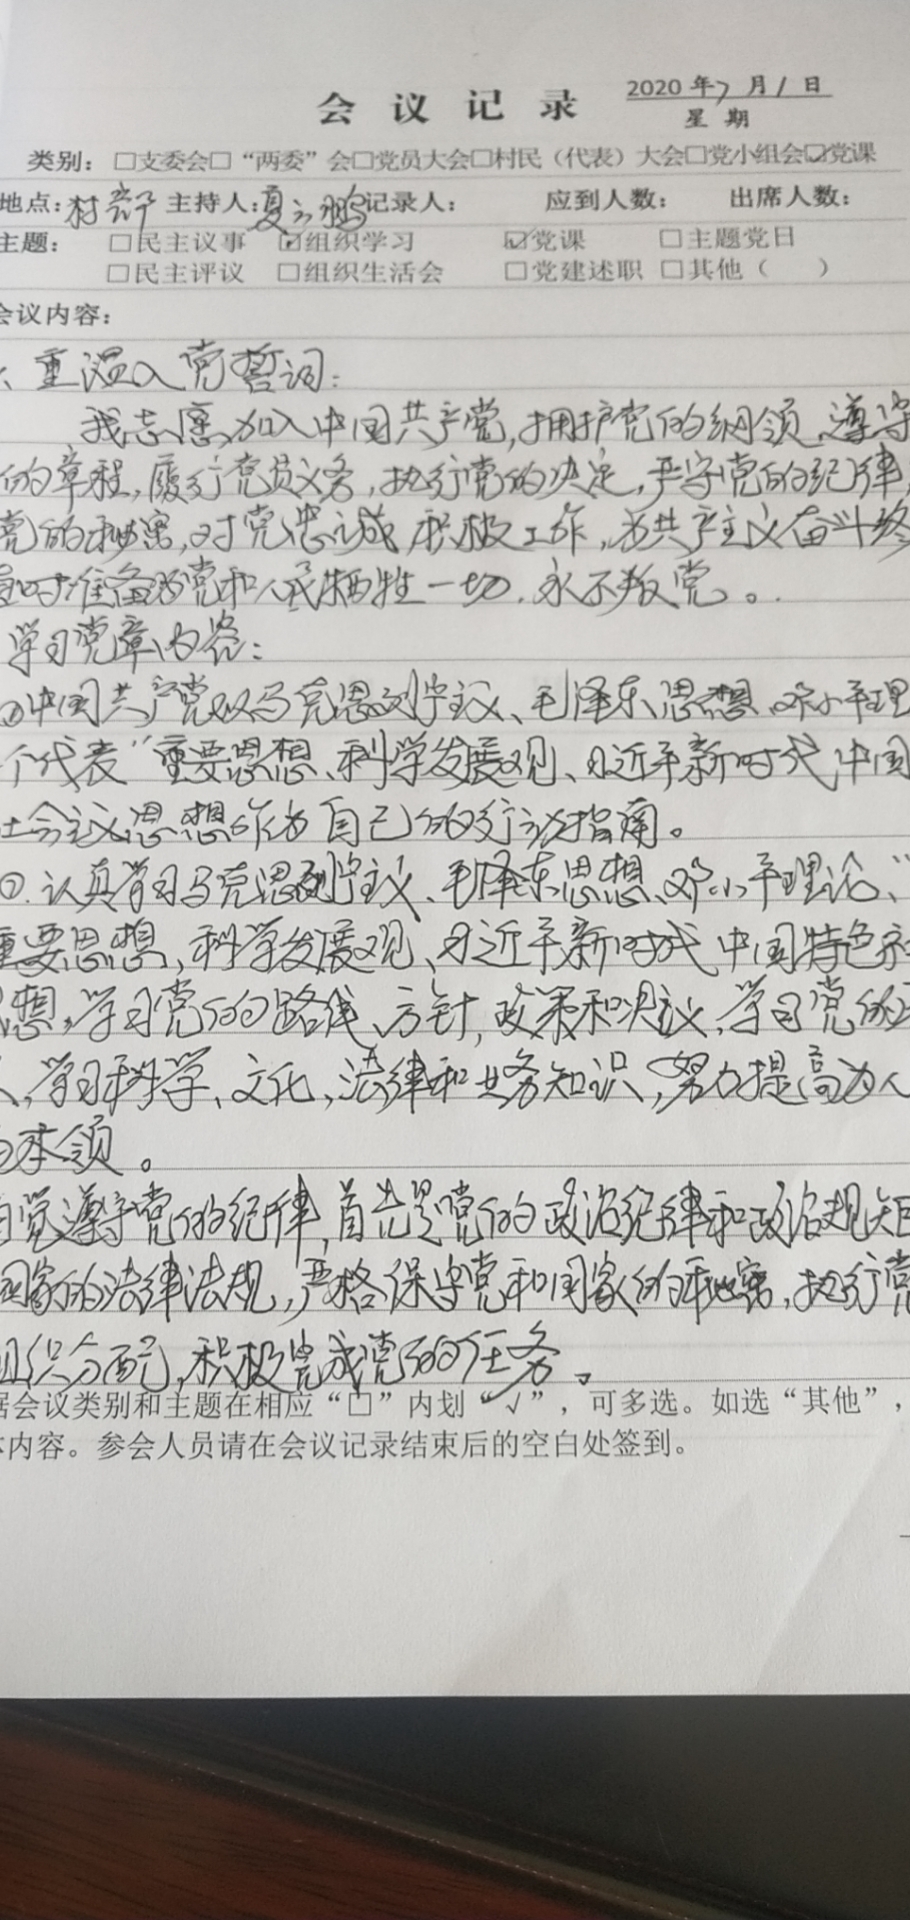 会议记录 2020年7月1日
星期
类别：□支委会□“两委”会□党员大会□村民（代表）大会□党小组会☑党课
地点：村部 主持人：夏云鹏 记录人： 应到人数： 出席人数：
主题： □民主议事 ☑组织学习 ☑党课 □主题党日
□民主评议 □组织生活会 □党建述职 □其他（ ）
会议内容：
、重温入党誓词：
我志愿加入中国共产党，拥护党的纲领、遵守
的章程，履行党员义务，执行党的决定，严守党的纪律，
党的秘密，对党忠诚，积极工作，为共产主义奋斗终
时准备为党和人民牺牲一切，永不叛党。
学习党章内容：
①中国共产党以马克思列宁主义、毛泽东思想、邓小平理
个代表”重要思想、科学发展观、习近平新时代中国
社会主义思想作为自己的行动指南。
②.认真学习马克思列宁主义、毛泽东思想、邓小平理论、“
重要思想、科学发展观、习近平新时代中国特色社
想，学习党的路线、方针，政策和决议，学习党的
，学习科学、文化、法律和业务知识，努力提高为人
的本领。
自觉遵守党的纪律，首先是党的政治纪律和政治规矩
国家的法律法规，严格保守党和国家的秘密，执行党
组织分配，积极完成党的任务。
据会议类别和主题在相应“□”内划“√”，可多选。如选“其他”，
体内容。参会人员请在会议记录结束后的空白处签到。